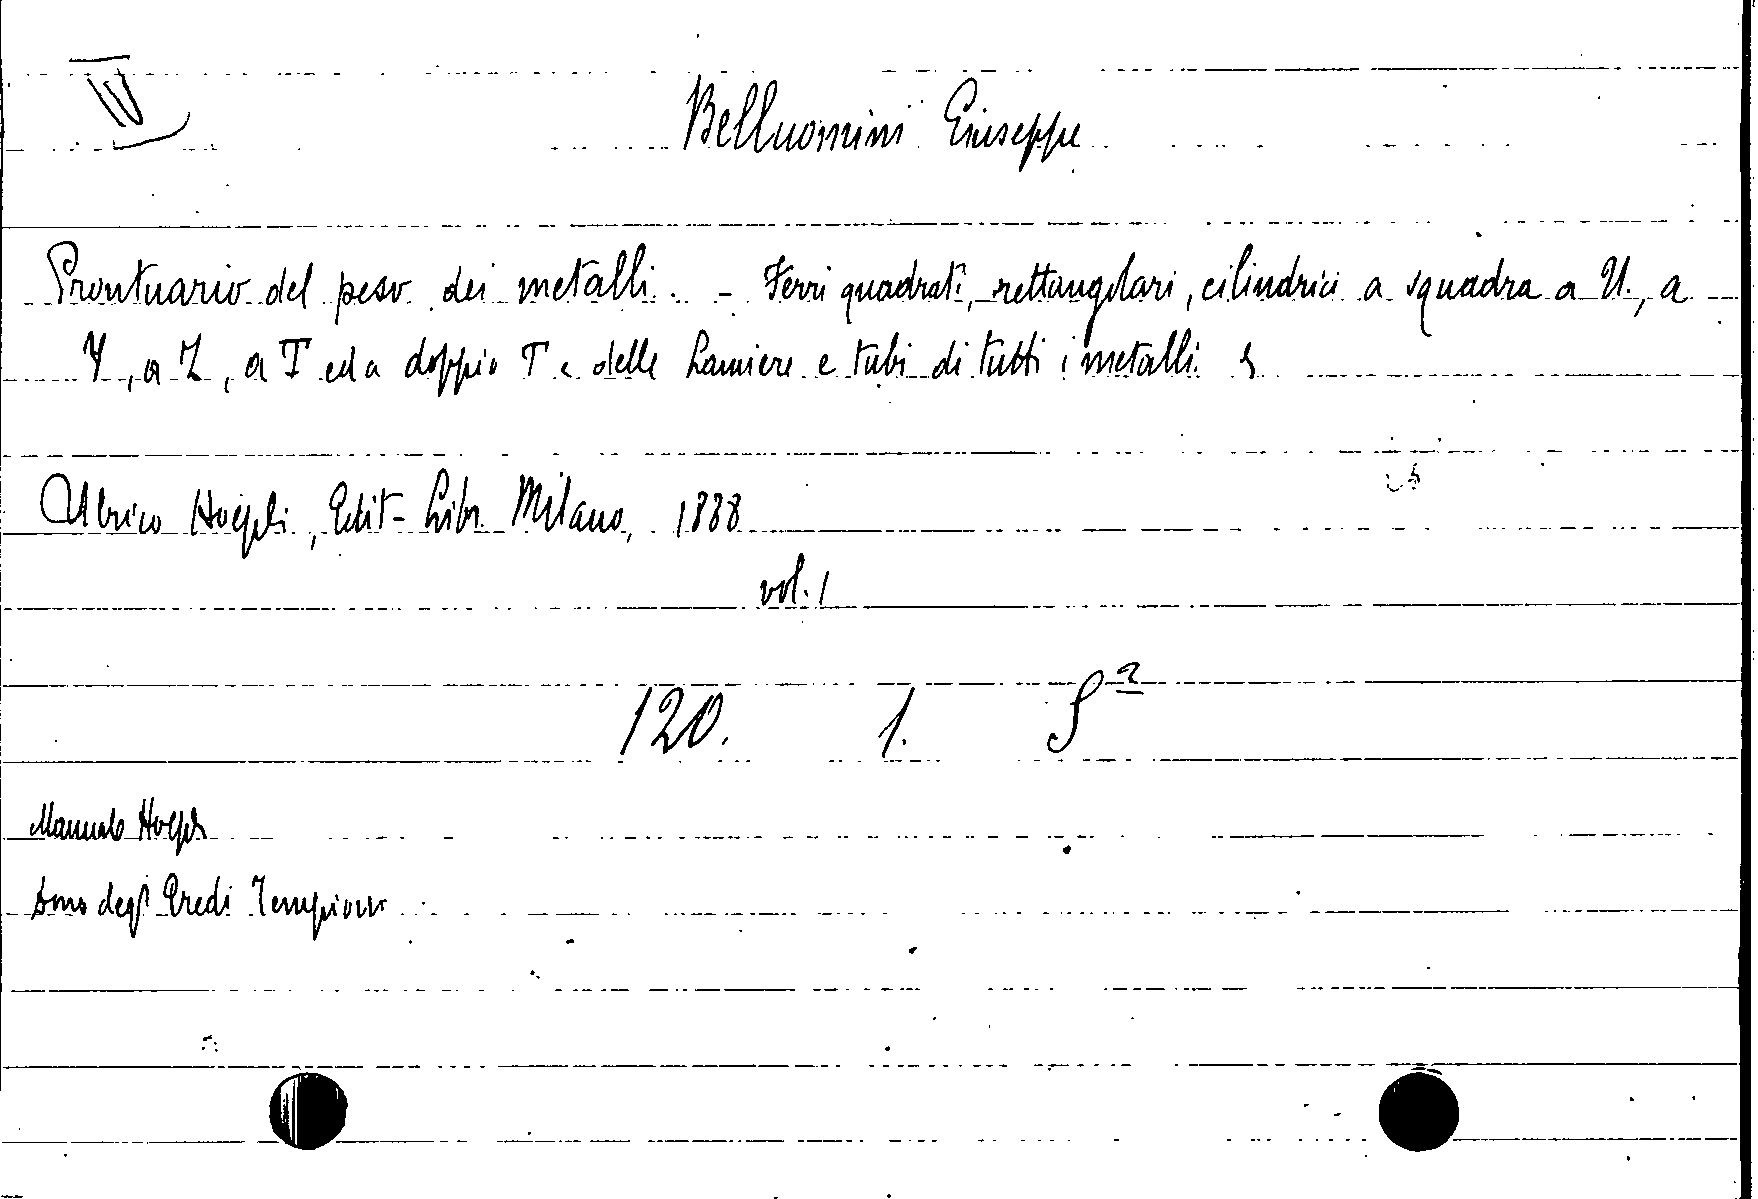 IV
Belluomini Giuseppe
Prontuario del peso dei metalli. - Ferri quadrati, rettangolari, cilindrici a squadra a U., a
Y, a Z, a T ed a doppio T e delle Lamiere e tubi di tutti i metalli.
Ulrico Hoepli, Edit-Libr. Milano, 1888
vol. 1
120. 1. S²
Manuale Hoepli
Dono degli Eredi Tempioni